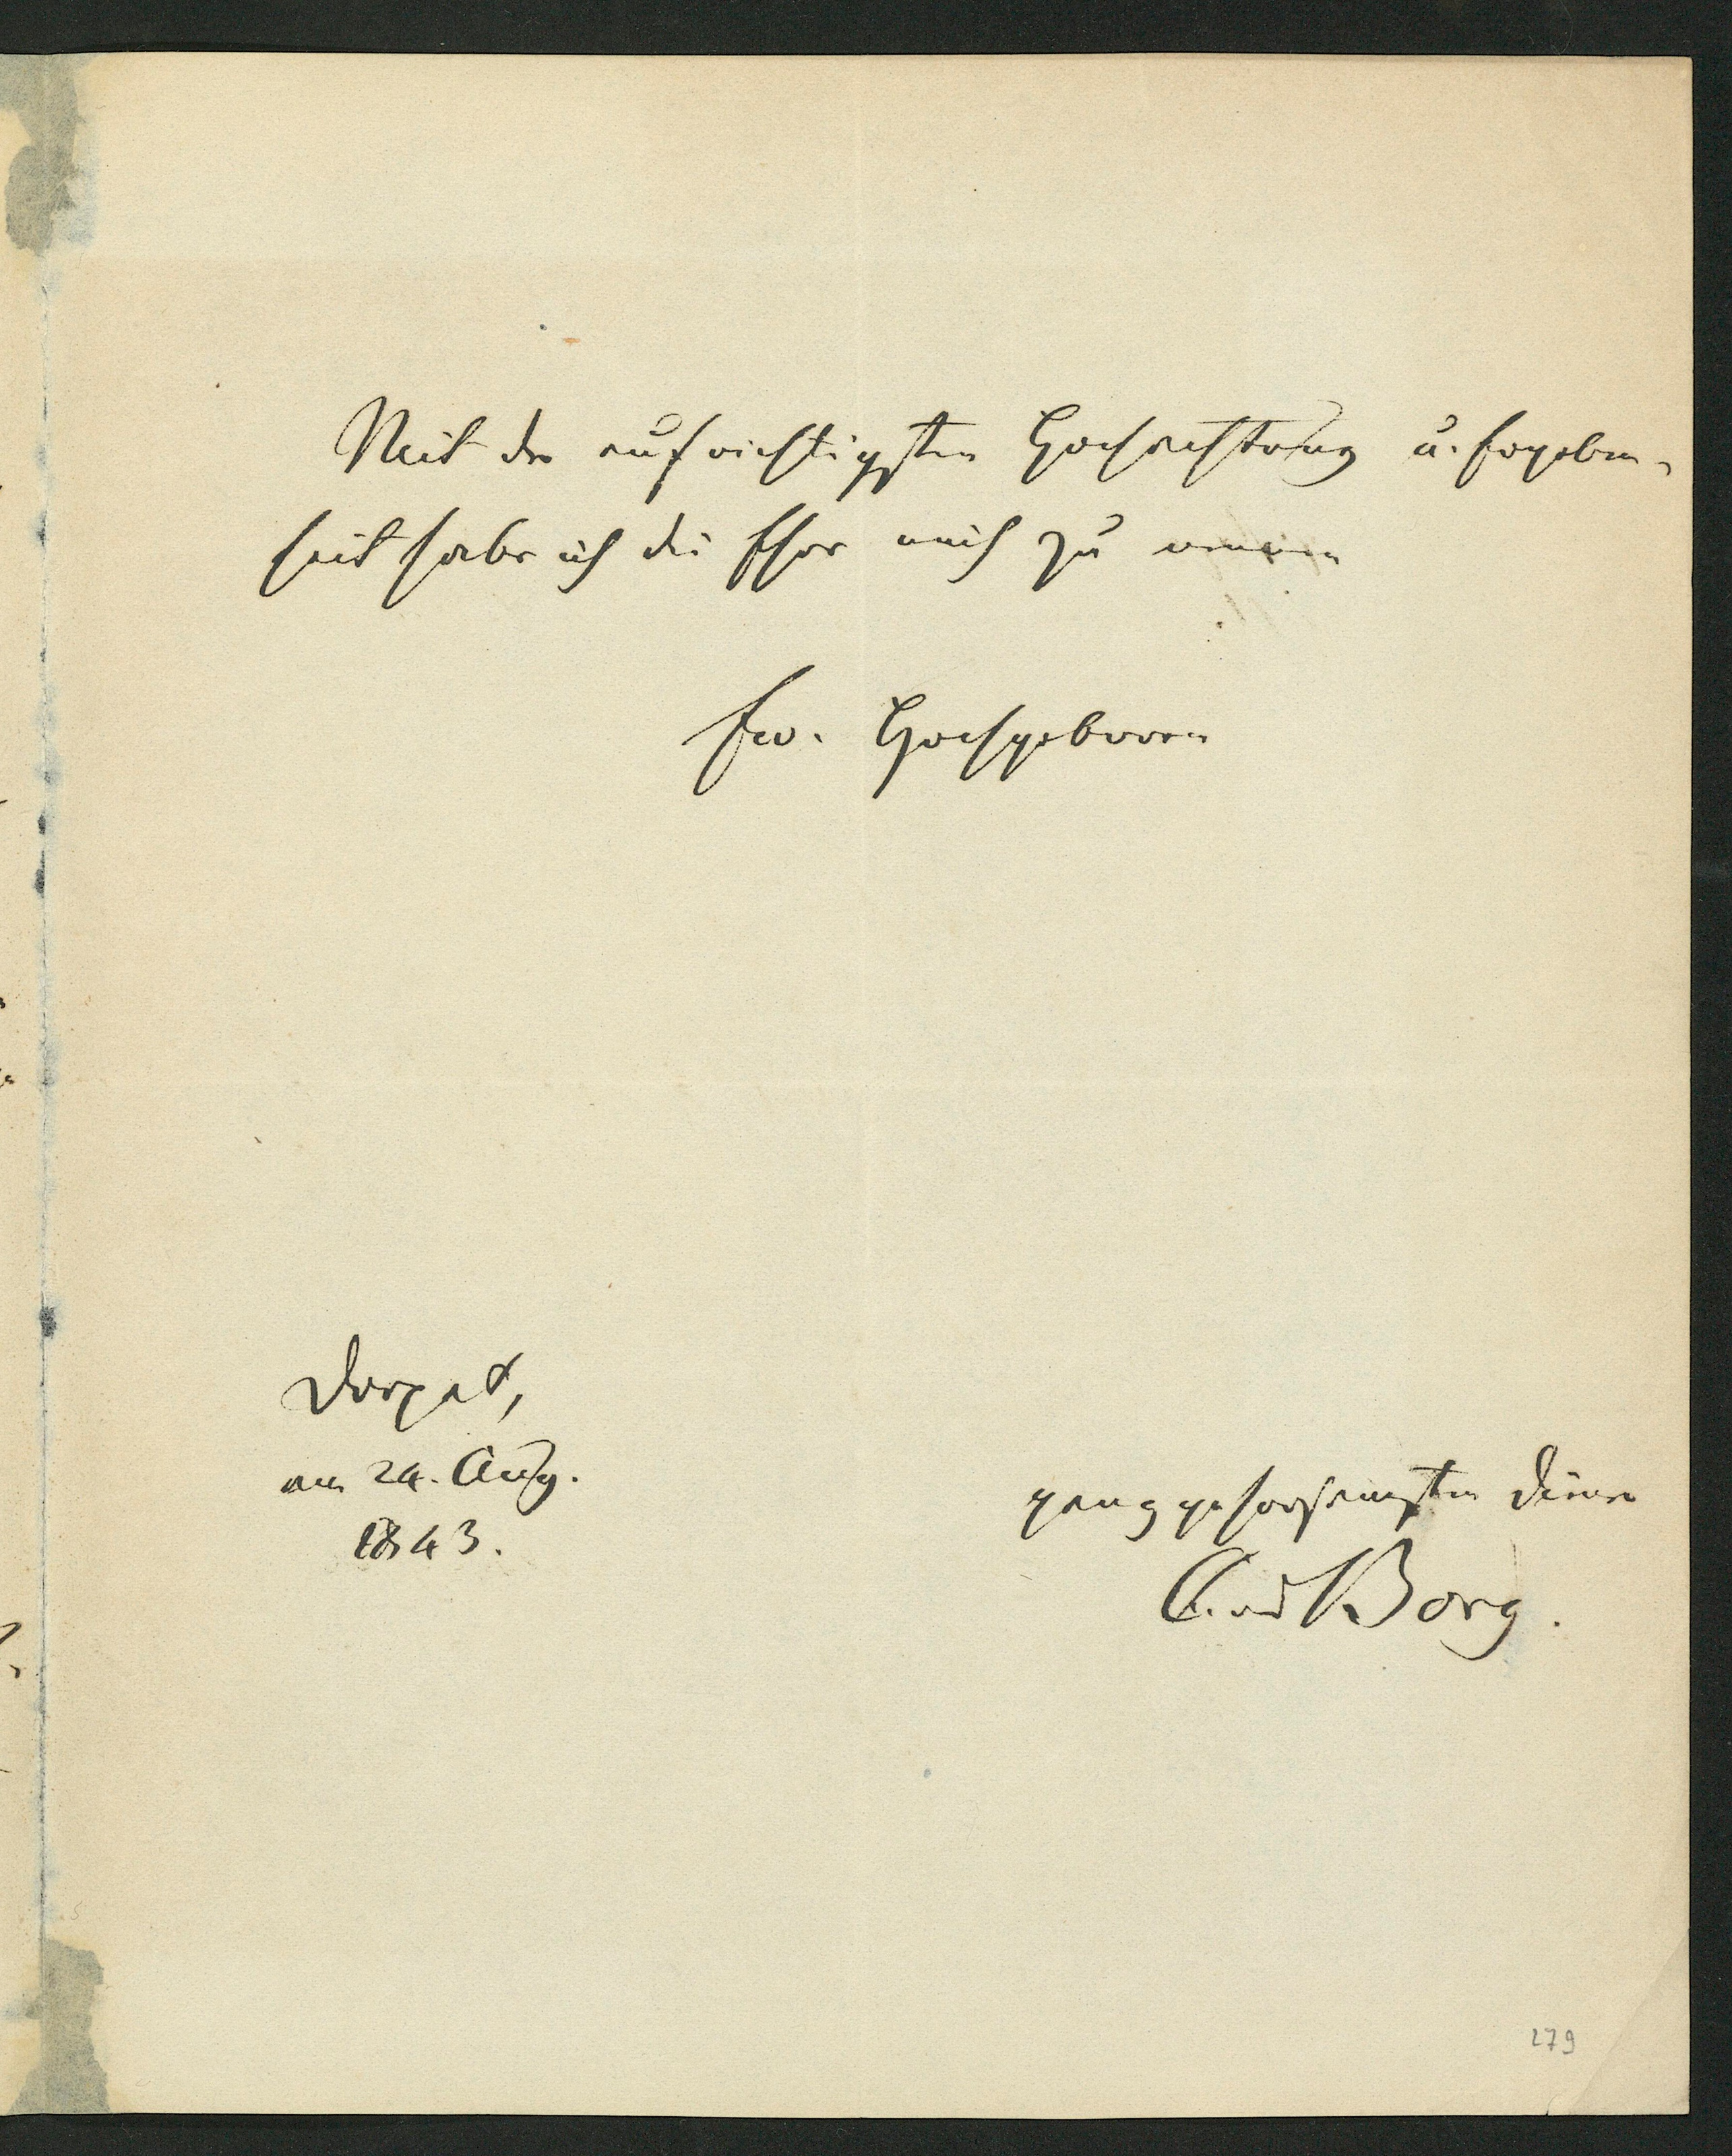 Mit der aufrichtigsten Hochachtung u. Ergeben-
heit habe ich die Ehre mich zu nennen
Ew. Hochgeboren
Dorpat,
am 24. Aug.
1843.
ganz gehorsamsten Diener
C. v d Borg.
279